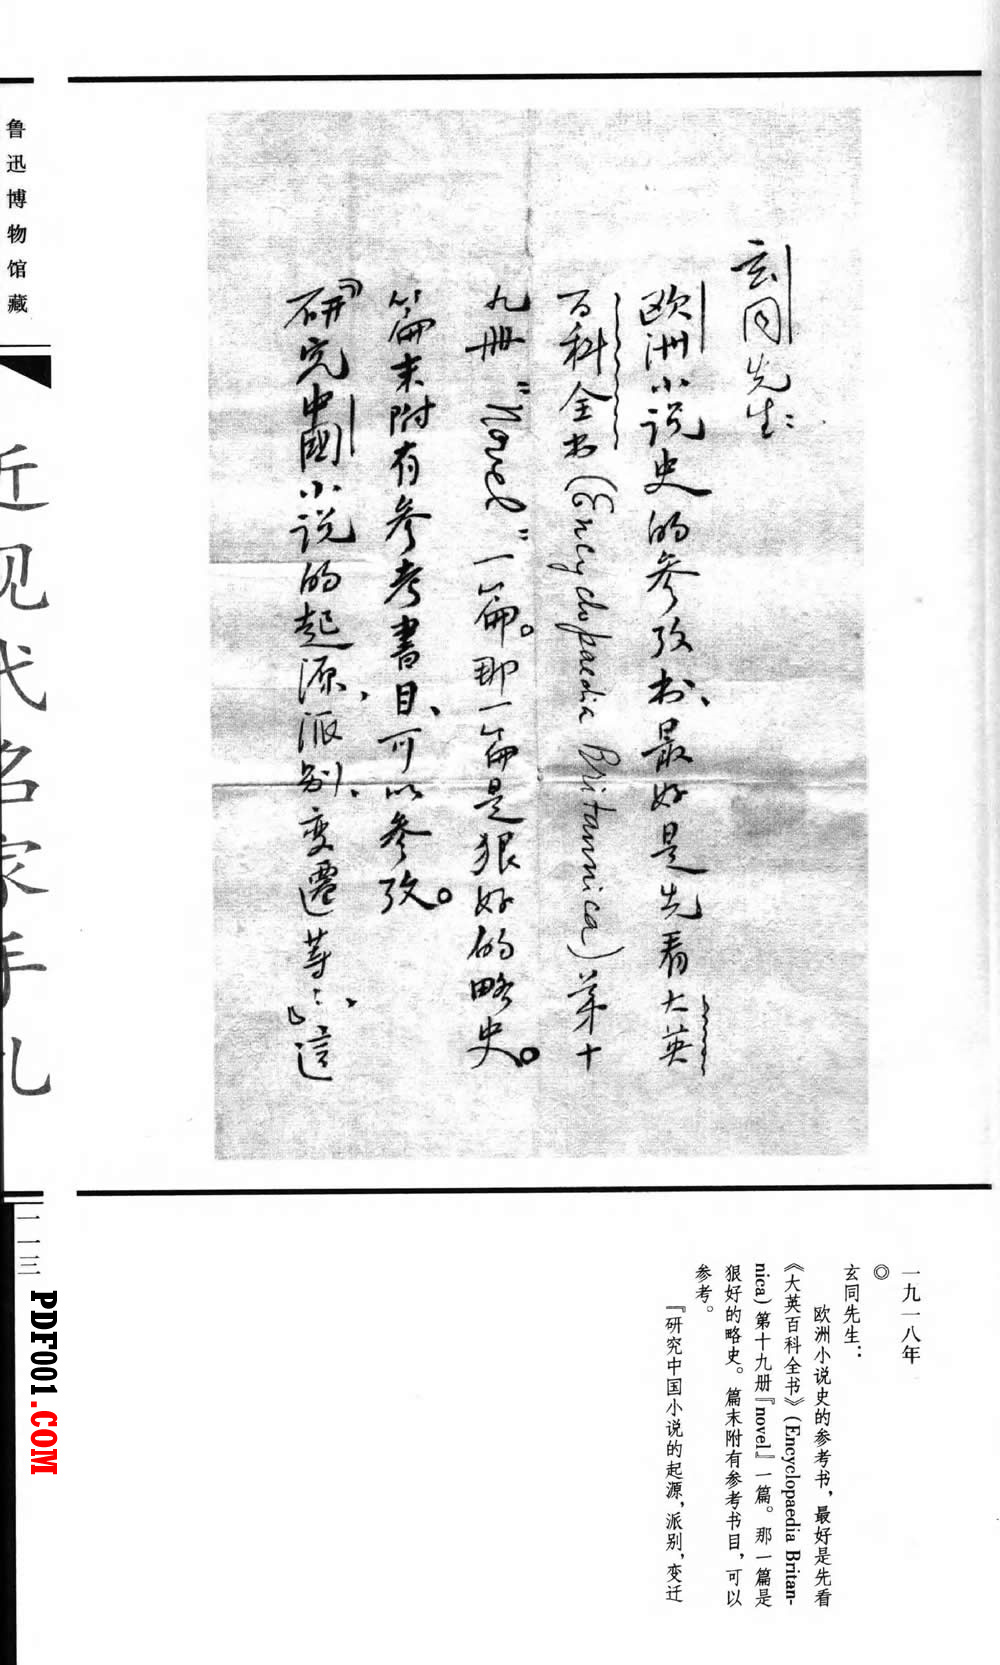 鲁迅博物馆藏
近现代名家手札
一一三
玄同先生：
欧洲小说史的参攷书、最好是先看大英
百科全书(Encyclopaedia Britannica)第十
九册"Novel"一篇。那一篇是狠好的略史。
篇末附有参考書目、可以参攷。
『研究中國小说的起源、派别、变遷等々、』這
一九一八年
◎
玄同先生：
欧洲小说史的参考书，最好是先看
《大英百科全书》(Encyclopaedia Britan-
nica)第十九册『novel』一篇。那一篇是
狠好的略史。篇末附有参考书目，可以
参考。
『研究中国小说的起源，派别，变迁
PDF001.COM